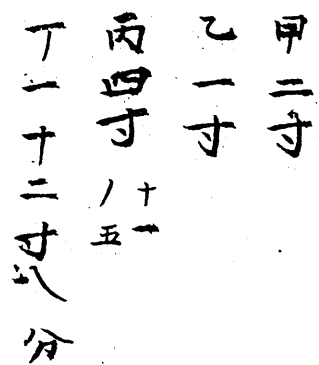 甲二寸
乙一寸
丙四寸
十一
ノ五
丁一十二寸八分